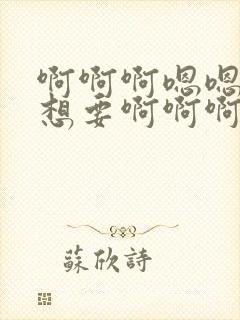 啊啊啊嗯嗯
想要啊啊啊
蘇欣詩